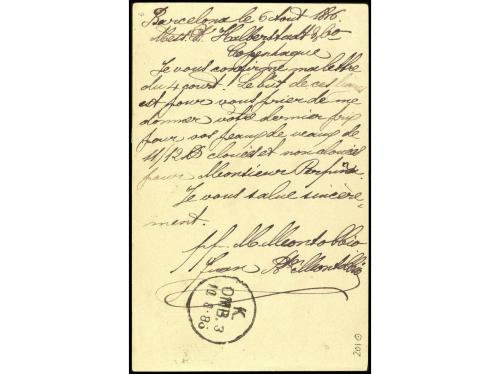 Barcelona le 6 Aout 1886.
Mess. Halberstadt & Co
Copenhague
Je vous confirme ma lettre
du 4 court! Le but de ces lignes
est pour vous prier de me
donner votre dernier prix
pour vos peaux de veaux de
11/12 clouées et non clouées
pour Monsieur
Je vous salue sincère-
ment.
pp. M. Montobbio
Juan Montobbio
K.
OMB. 3
10.8.86
201